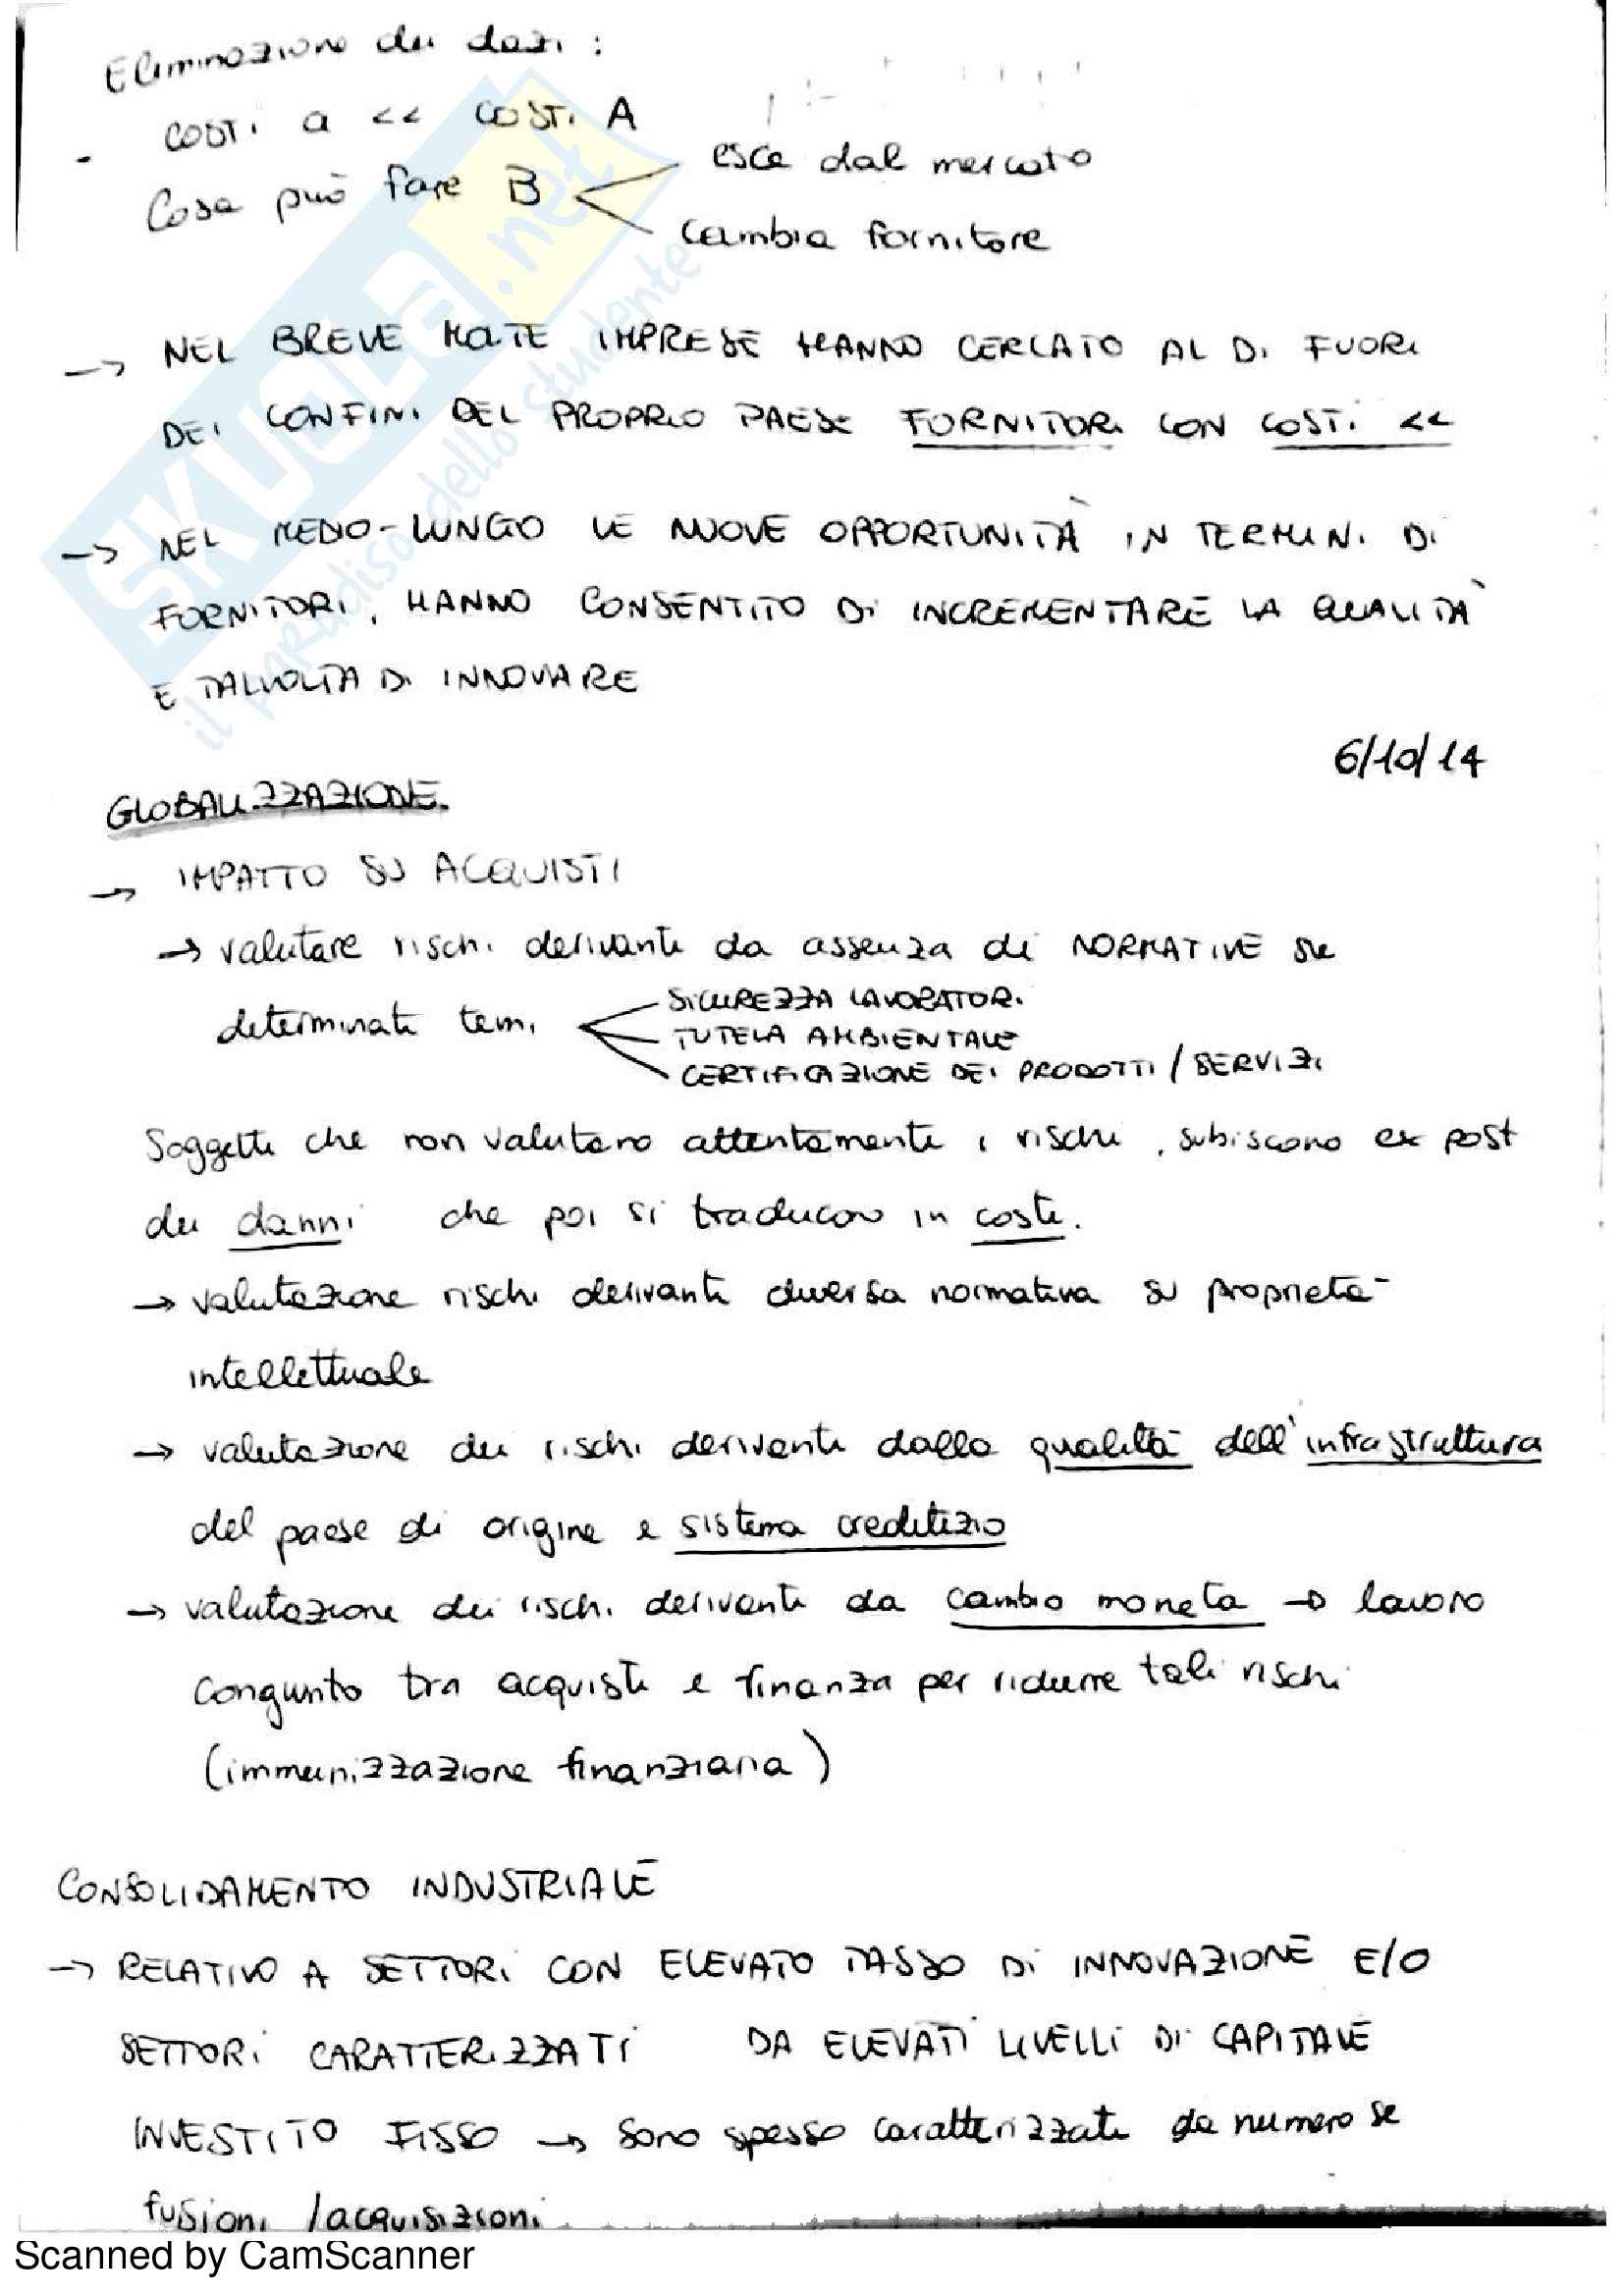 Eliminazione dei dazi :
- costi a << costi A
Cosa può fare B
esce dal mercato
cambia fornitore
-> NEL BREVE MOLTE IMPRESE HANNO CERCATO AL DI FUORI
DEI CONFINI DEL PROPRIO PAESE FORNITORI CON COSTI <<
-> NEL MEDIO-LUNGO LE NUOVE OPPORTUNITÀ IN TERMINI DI
FORNITORI, HANNO CONSENTITO DI INCREMENTARE LA QUALITÀ
E TALVOLTA DI INNOVARE
6/10/14
GLOBALIZZAZIONE.
-> IMPATTO SU ACQUISTI
-> valutare rischi derivanti da assenza di NORMATIVE su
determinati temi
SICUREZZA LAVORATORI
TUTELA AMBIENTALE
CERTIFICAZIONE DEI PRODOTTI / SERVIZI
Soggetti che non valutano attentamente i rischi, subiscono ex post
dei danni che poi si traducono in costi.
-> valutazione rischi derivanti diversa normativa su proprietà
intellettuale
-> valutazione dei rischi derivanti dalla qualità dell'infrastruttura
del paese di origine e sistema creditizio
-> valutazione dei rischi derivanti da cambio moneta -> lavoro
congiunto tra acquisti e finanza per ridurre tali rischi
(immunizzazione finanziaria)
CONSOLIDAMENTO INDUSTRIALE
-> RELATIVO A SETTORI CON ELEVATO TASSO DI INNOVAZIONE E/O
SETTORI CARATTERIZZATI DA ELEVATI LIVELLI DI CAPITALE
INVESTITO FISSO -> sono spesso caratterizzati da numerose
fusioni / acquisizioni
SKUOLA.net
il paradiso dello studente
Scanned by CamScanner